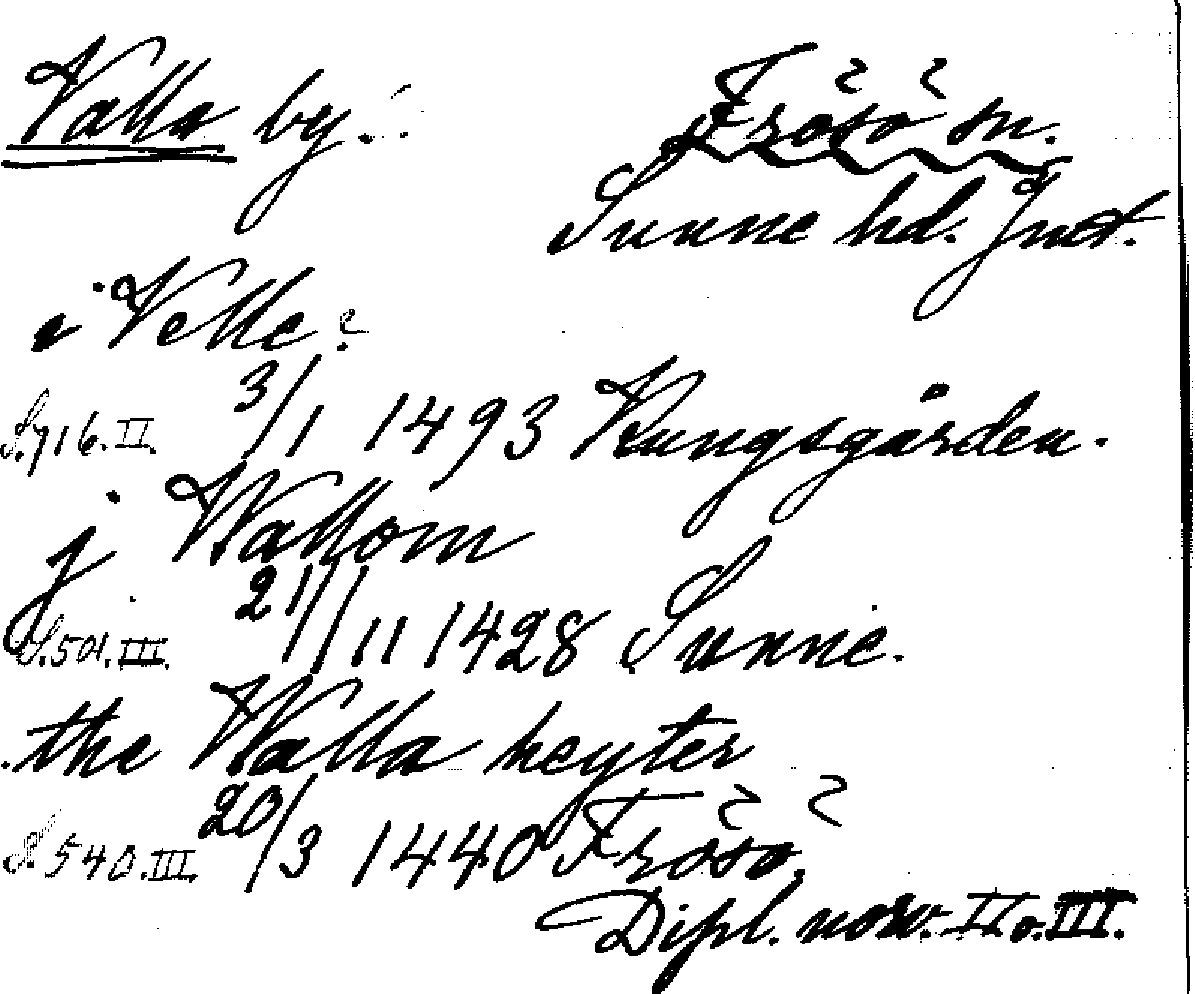 Valla by.
Frösö sn.
Sunne hd. Jmt.
i Velle?
S. 716. II. 3/1 1493 Kungsgården.
j Wallom
S. 501. III. 21/11 1428 Sunne.
the Walla heyter
S 540. III. 20/3 1440 Frösö,
Dipl. norv. II o. III.